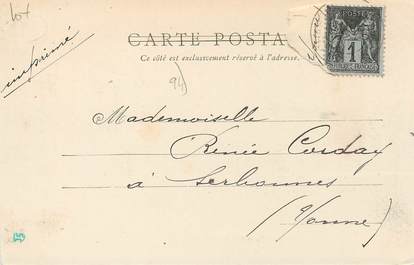 lot
CARTE POSTA
Ce côté est exclusivement réservé à l'adresse.
POSTE
1
RÉPUBLIQUE FRANÇAISE
imprimé
94)
Mademoiselle
Renée Corday
à Serbonnes
(Yonne)